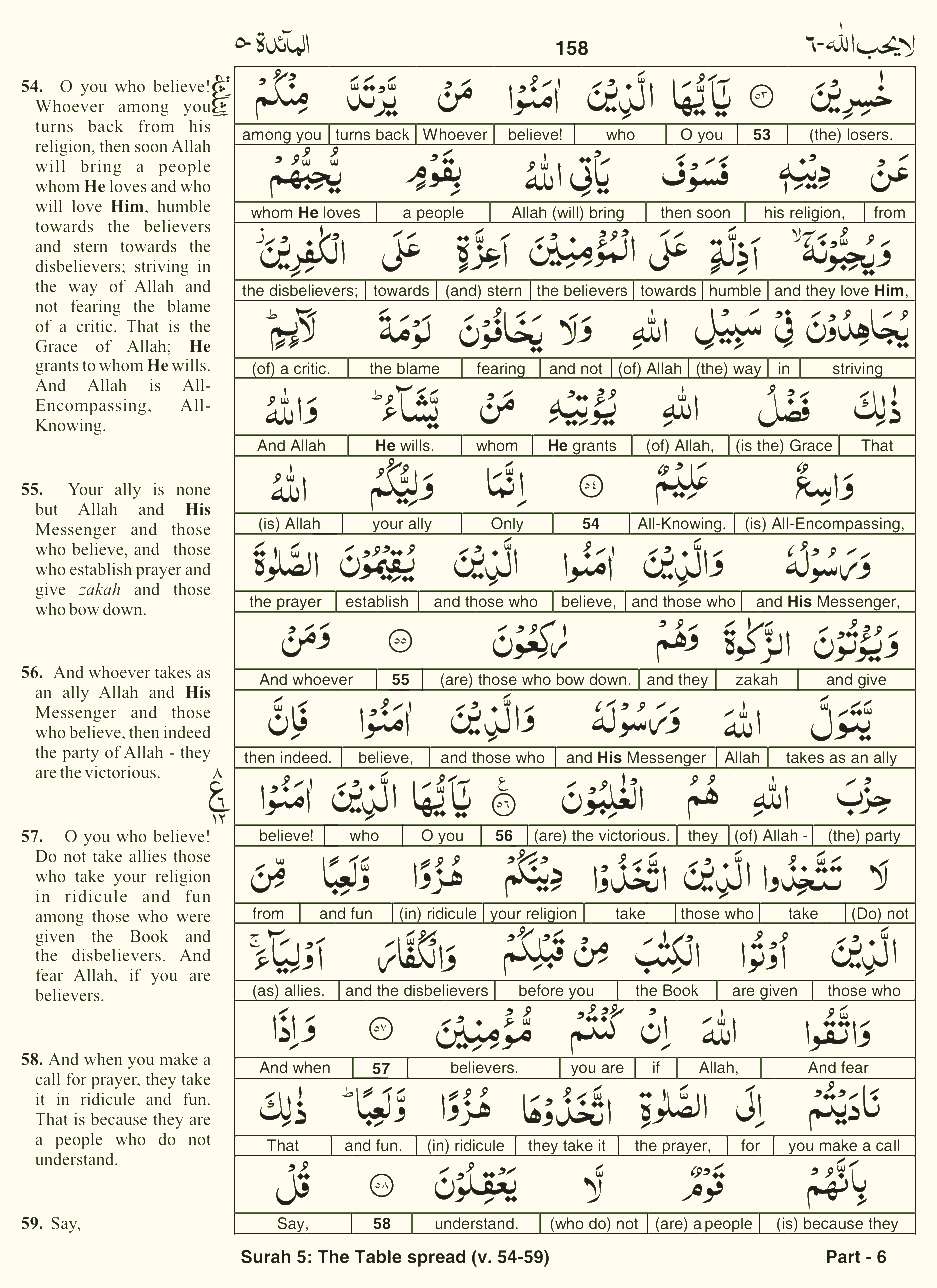 المآئدة-٥ 158 لا يحب الله-٦
54. O you who believe!
Whoever among you
turns back from his
religion, then soon Allah
will bring a people
whom He loves and who
will love Him, humble
towards the believers
and stern towards the
disbelievers; striving in
the way of Allah and
not fearing the blame
of a critic. That is the
Grace of Allah; He
grants to whom He wills.
And Allah is All-
Encompassing, All-
Knowing.
55. Your ally is none
but Allah and His
Messenger and those
who believe, and those
who establish prayer and
give zakah and those
who bow down.
56. And whoever takes as
an ally Allah and His
Messenger and those
who believe, then indeed
the party of Allah - they
are the victorious.
57. O you who believe!
Do not take allies those
who take your religion
in ridicule and fun
among those who were
given the Book and
the disbelievers. And
fear Allah, if you are
believers.
58. And when you make a
call for prayer, they take
it in ridicule and fun.
That is because they are
a people who do not
understand.
59. Say,
خٰسِرِيْنَ ٥٣ يٰۤاَيُّهَا الَّذِيْنَ اٰمَنُوْا مَنْ يَّرْتَدَّ مِنْكُمْ
among you turns back Whoever believe! who O you 53 (the) losers.
عَنْ دِيْنِهٖ فَسَوْفَ يَاْتِي اللّٰهُ بِقَوْمٍ يُّحِبُّهُمْ
whom He loves a people Allah (will) bring then soon his religion, from
وَيُحِبُّوْنَهٗۤ ۙ اَذِلَّةٍ عَلَى الْمُؤْمِنِيْنَ اَعِزَّةٍ عَلَى الْكٰفِرِيْنَ ؗ
the disbelievers; towards (and) stern the believers towards humble and they love Him,
يُجَاهِدُوْنَ فِيْ سَبِيْلِ اللّٰهِ وَلَا يَخَافُوْنَ لَوْمَةَ لَآئِمٍ ؕ
(of) a critic. the blame fearing and not (of) Allah (the) way in striving
ذٰلِكَ فَضْلُ اللّٰهِ يُؤْتِيْهِ مَنْ يَّشَآءُ ؕ وَاللّٰهُ
And Allah He wills. whom He grants (of) Allah, (is the) Grace That
وَاسِعٌ عَلِيْمٌ ٥٤ اِنَّمَا وَلِيُّكُمُ اللّٰهُ
(is) Allah your ally Only 54 All-Knowing. (is) All-Encompassing,
وَرَسُوْلُهٗ وَالَّذِيْنَ اٰمَنُوا الَّذِيْنَ يُقِيْمُوْنَ الصَّلٰوةَ
the prayer establish and those who believe, and those who and His Messenger,
وَيُؤْتُوْنَ الزَّكٰوةَ وَهُمْ رٰكِعُوْنَ ٥٥ وَمَنْ
And whoever 55 (are) those who bow down. and they zakah and give
يَّتَوَلَّ اللّٰهَ وَرَسُوْلَهٗ وَالَّذِيْنَ اٰمَنُوْا فَاِنَّ
then indeed. believe, and those who and His Messenger Allah takes as an ally
حِزْبَ اللّٰهِ هُمُ الْغٰلِبُوْنَ ٥٦ ع يٰۤاَيُّهَا الَّذِيْنَ اٰمَنُوْا
٨ ع ٦ ١٢
believe! who O you 56 (are) the victorious. they (of) Allah - (the) party
لَا تَتَّخِذُوا الَّذِيْنَ اتَّخَذُوْا دِيْنَكُمْ هُزُوًا وَّلَعِبًا مِّنَ
from and fun (in) ridicule your religion take those who take (Do) not
الَّذِيْنَ اُوْتُوا الْكِتٰبَ مِنْ قَبْلِكُمْ وَالْكُفَّارَ اَوْلِيَآءَ ۚ
(as) allies. and the disbelievers before you the Book are given those who
وَاتَّقُوا اللّٰهَ اِنْ كُنْتُمْ مُّؤْمِنِيْنَ ٥٧ وَاِذَا
And when 57 believers. you are if Allah, And fear
نَادَيْتُمْ اِلَى الصَّلٰوةِ اتَّخَذُوْهَا هُزُوًا وَّلَعِبًا ؕ ذٰلِكَ
That and fun. (in) ridicule they take it the prayer, for you make a call
بِاَنَّهُمْ قَوْمٌ لَّا يَعْقِلُوْنَ ٥٨ قُلْ
Say, 58 understand. (who do) not (are) a people (is) because they
Surah 5: The Table spread (v. 54-59) Part - 6